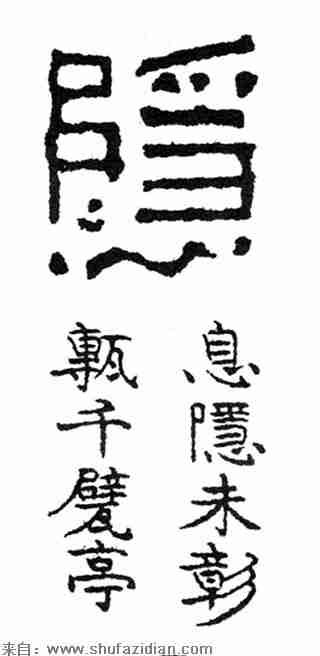 隱
息隱未彰
甎千甓亭
来自：www.shufazidian.com